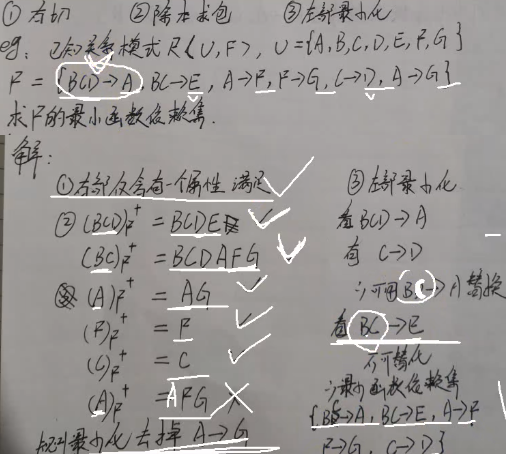 ① 右切 ② 除本求包 ③ 左部最小化
eg: 已知关系模式 R(U,F), U={A,B,C,D,E,F,G}
F={BCD→A, BC→E, A→F, F→G, C→D, A→G}
求F的最小函数依赖集.
解:
① 右部仅含有一个属性 满足
② (BCD)F+ = BCDE
(BC)F+ = BCDAFG
(A)F+ = AG
(F)F+ = F
(C)F+ = C
(A)F+ = AFG
最小化去掉 A→G
③ 左部最小化
看 BCD→A
有 C→D
∴可用 BC→A 替换
看 BC→E
不可替化
∴最小函数依赖集
{BC→A, BC→E, A→F
F→G, C→D}